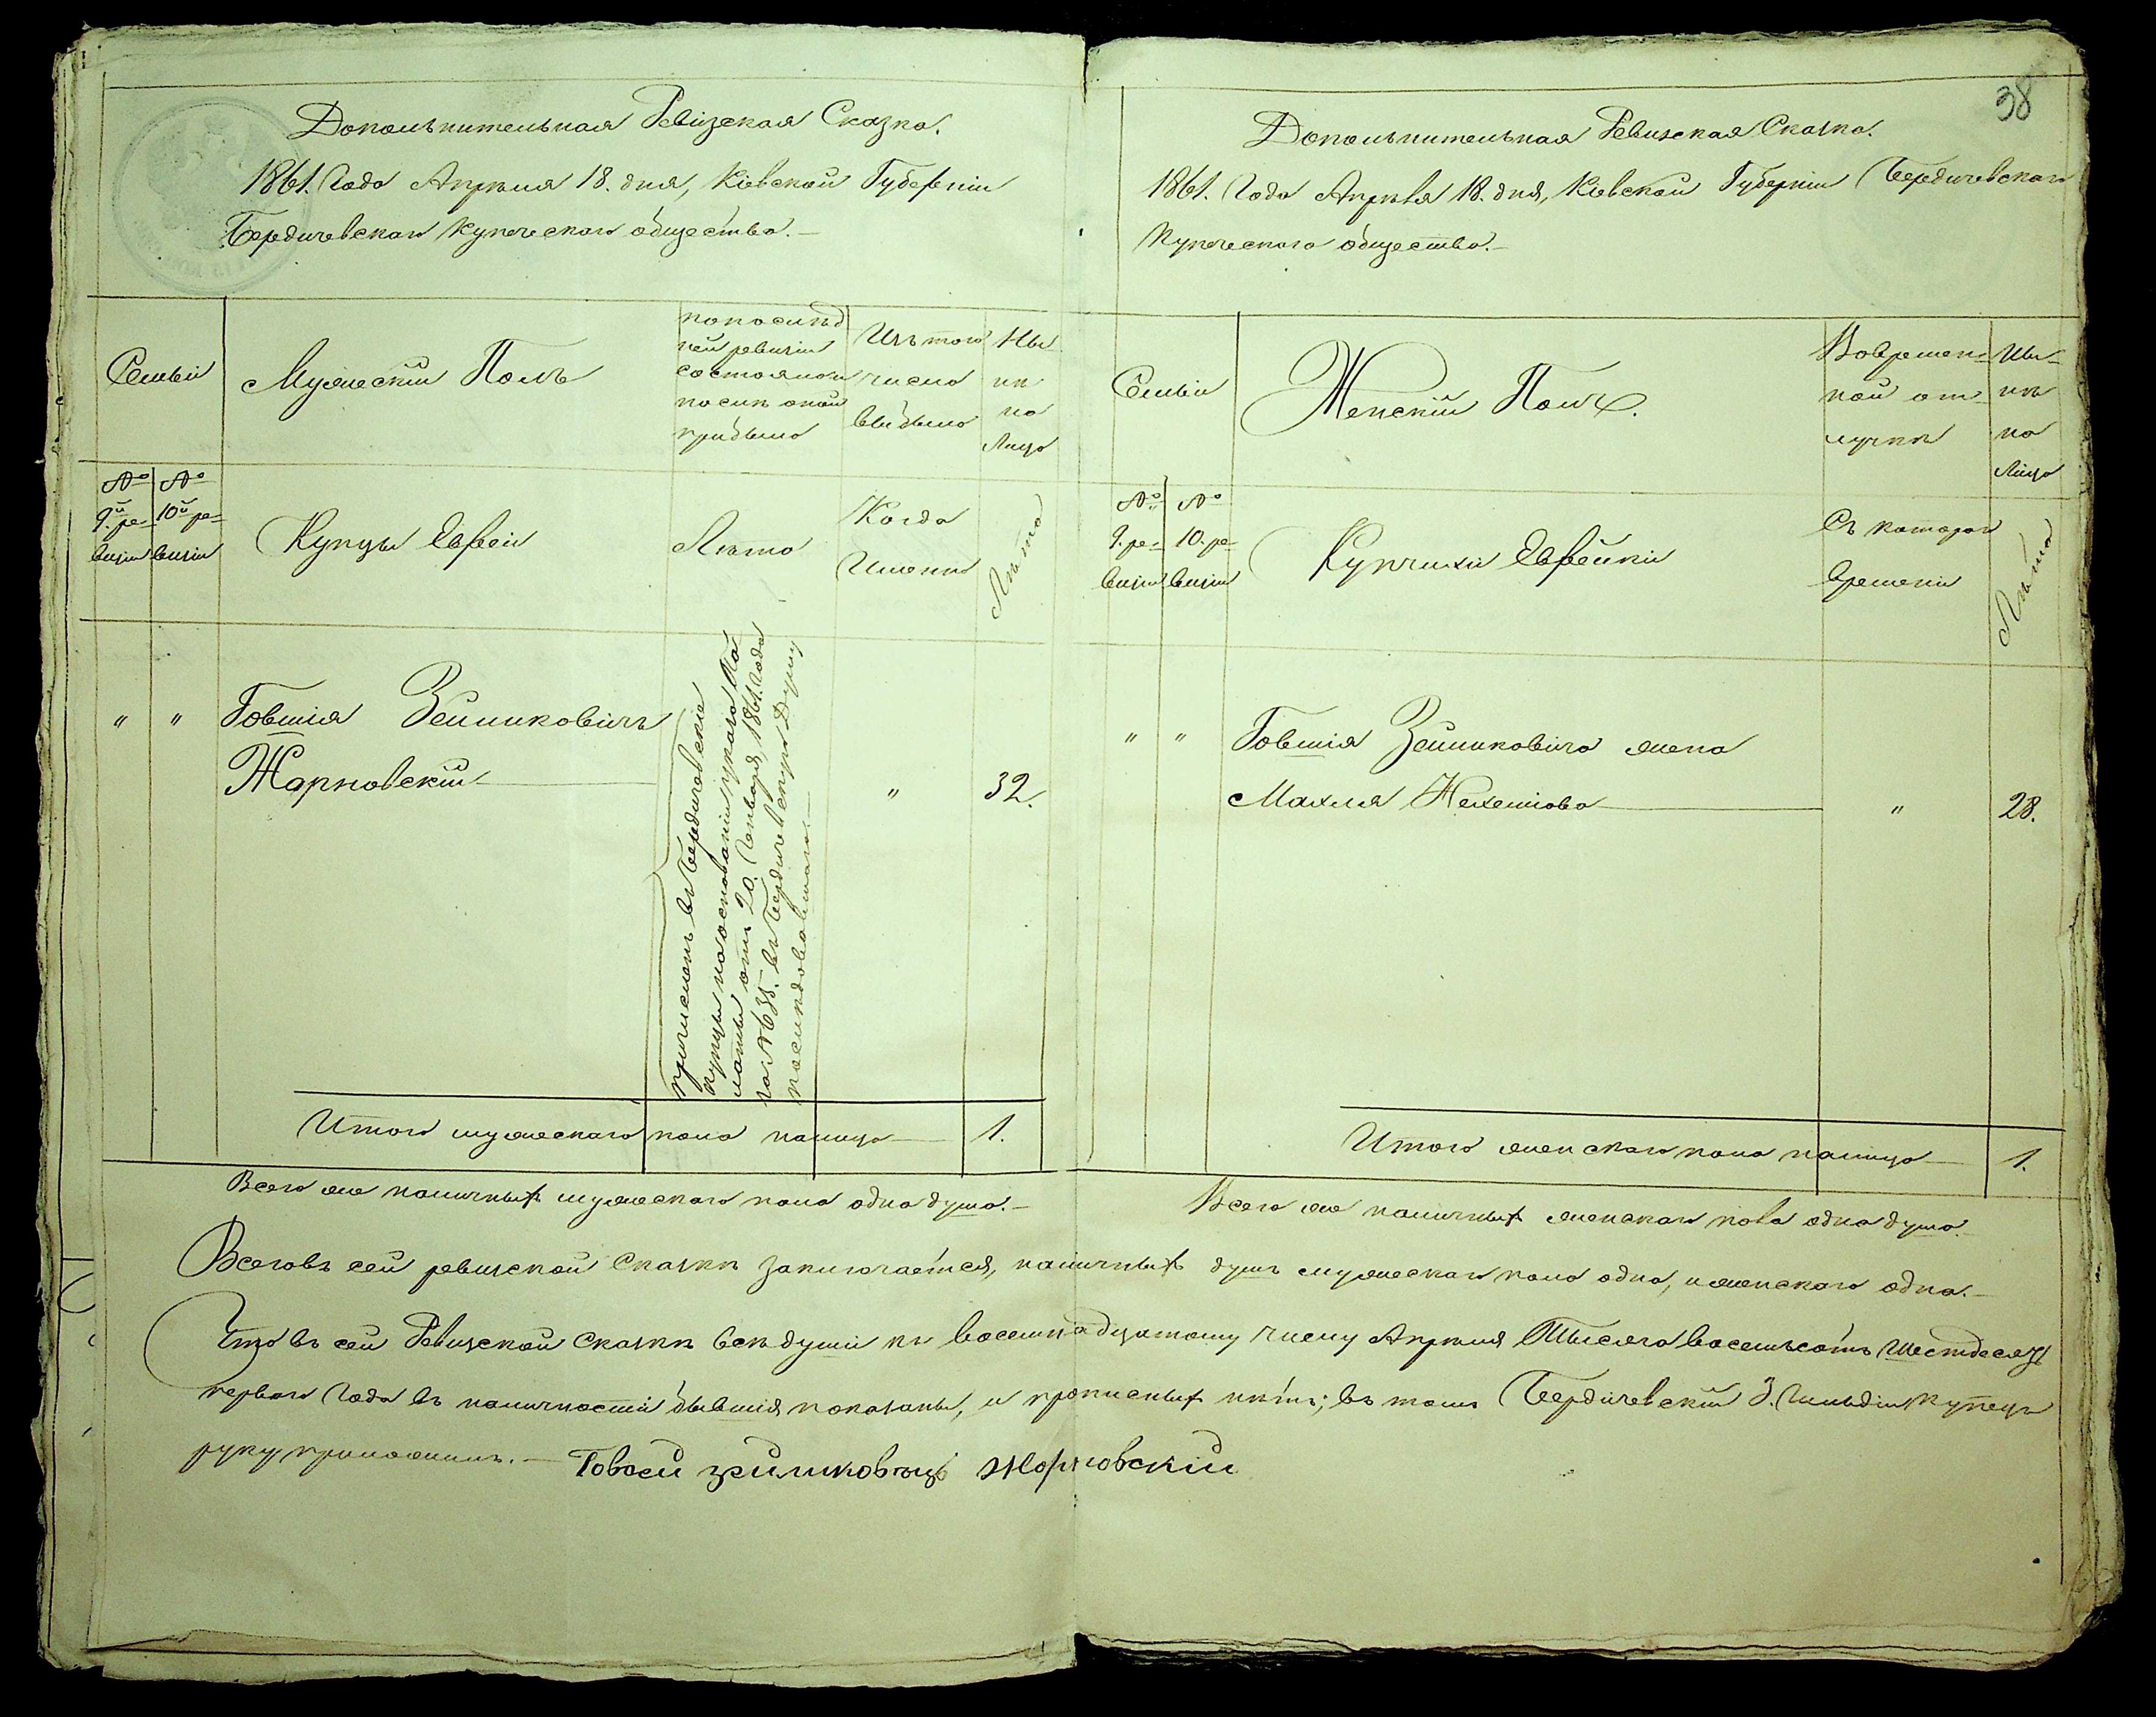 38
Дополнительная Ревизская Сказка.
1861. Года Апреля 18. дня, Кіевской Губерніи
Бердичевскаго Купеческаго общества.—
Семьи
Мужескій Полъ
По послѣд
ней ревизіи
состояло и
послѣ оной
прибыло
Изъ того
числа
выбыло
Ны
нѣ
на
Лицо
№ 9й ре-
визіи
№ 10й ре-
визіи
Купцы Евреи
Лѣта
Когда
Именно
Лѣта
" "
Говшія Зельмковичъ
Жарновскій
причисленъ въ Бердичевскіе
купцы на основаніи указа Па
латы отъ 20. Генваря 1861. года
за № 635. въ Бердичевскую Думу
послѣдовавшаго.—
"
32.
Итого мужескаго пола на лицо
1.
Всего же наличныхъ мужескаго пола одна душа.—
Дополнительная Ревизская Сказка.
1861. Года Апрѣля 18. дня, Кіевской Губерніи Бердичевскаго
Купеческаго общества.—
Семьи
Женскій Полъ.
Во времен-
ной от
лучкѣ
Ны-
нѣ
на
Лицо
№ 9. ре-
визіи
№ 10. ре-
визіи
Купчихи Еврейки
Съ котораго
времени
Лѣта
" "
Говшія Зельмковича жена
Махля
"
28.
Итого женскаго пола на лицо
1.
Всего же наличныхъ женскаго пола одна душа.—
Всего въ сей ревизской сказкѣ заключается, наличныхъ душъ мужескаго пола одна, и женскаго одна.—
Что въ сей Ревизской сказкѣ всѣ души къ восемнадцатому числу Апреля Тысяча восемьсотъ шестдесятъ
перваго Года въ наличности бывшія показаны, и прописныхъ нѣтъ; въ томъ Бердичевскій 3. Гильдіи Купецъ
руку приложилъ.— Жорновскій